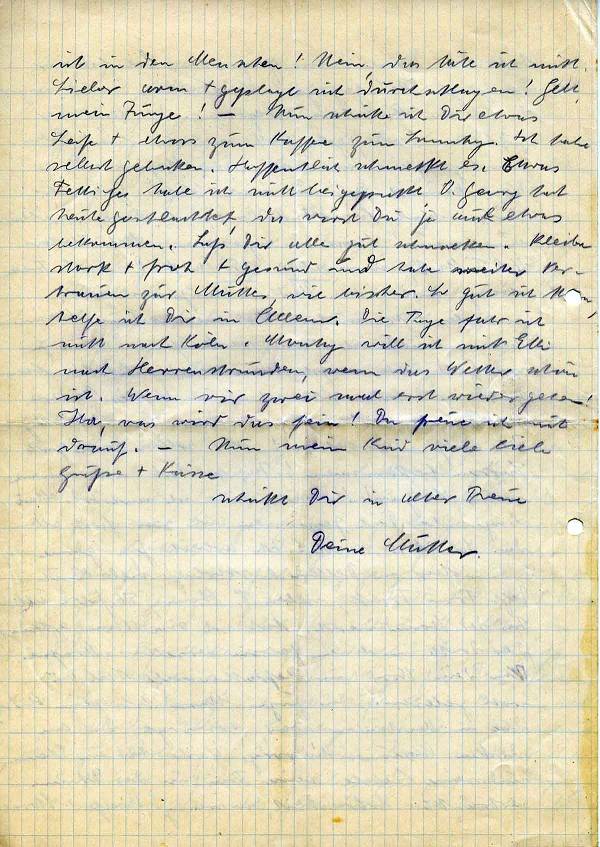 ich in den Menschen! Nein, das tute ich nicht.
Lieber arm + geplagt sich durchschlagen! Gell,
mein Junge! — Nun schicke ich Dir etwas
Seife + etwas zum Kaffee zum Sonntag. Ich habe
selbst gebacken. Hoffentlich schmeckt es. Etwas
Fettiges habe ich nicht beigepackt. O. Georg hat
heute geschlachtet, da wirst Du ja auch etwas
bekommen. Laß Dir alle gut schmecken. Bleibe
stark + froh + gesund und habe weiter Ver-
trauen zur Mutter, wie bisher. So gut ich kann,
helfe ich Dir in Allem. Die Tage fahr ich
mit nach Köln. Montag will ich mit Elli
nach Herrenstrunden, wenn das Wetter schön
ist. Wenn wir zwei mal erst wieder gehen!
Ha, was wird das fein! Da freue ich mich
drauf. — Nun mein Kind viele liebe
Grüße + Küsse
schickt Dir in alter Treue
Deine Mutter.